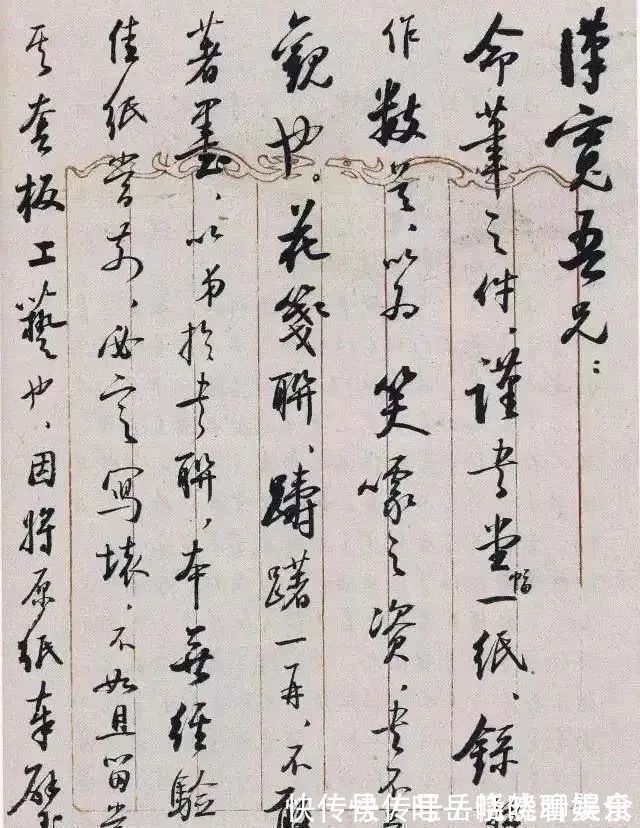 漢寬吾兄：
命筆之件、謹書堂幅一紙、錄
作數首、以為笑噱之資、其不
觀也。花箋聯、躊躇一再、不
著墨、以弟於書聯，本無經驗
佳紙當前、必定寫壞、不如且留
其套板工藝也、因將原紙奉